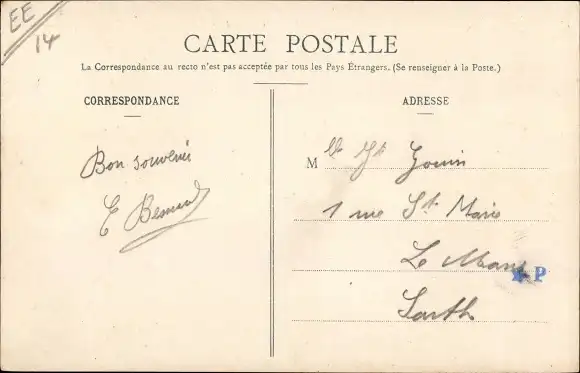 EE
14
CARTE POSTALE
La Correspondance au recto n'est pas acceptée par tous les Pays Étrangers. (Se renseigner à la Poste.)
CORRESPONDANCE
ADRESSE
Bon souvenir
E Besnard
Mlle Gouin
1 rue Ste Marie
Le Mans
P
Sarthe